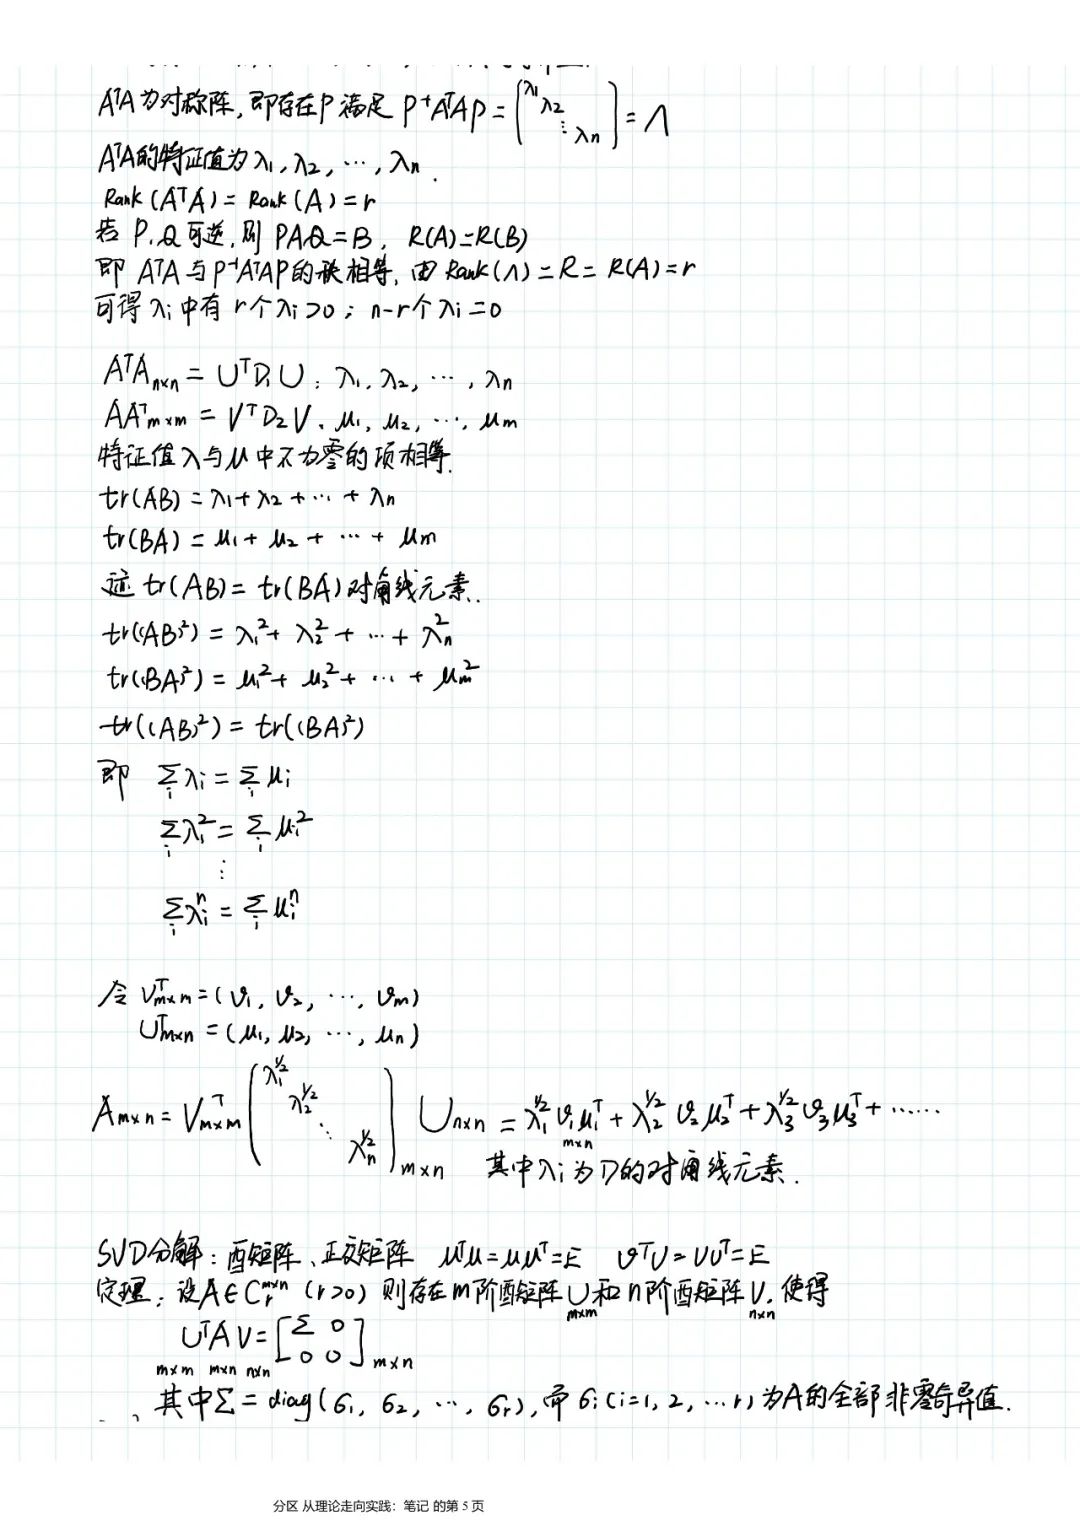 AᵀA为对称阵,即存在P满足 P⁻¹AᵀAP = [λ₁ λ₂ ⋱ λn] = Λ
AᵀA的特征值为λ₁, λ₂, …, λn.
Rank(AᵀA) = Rank(A) = r
若 P, Q 可逆, 则 PAQ = B, R(A) = R(B)
即 AᵀA 与 P⁻¹AᵀAP 的秩相等, 由 Rank(Λ) = R = R(A) = r
可得 λi 中有 r个 λi>0; n-r个 λi=0
AᵀA n×n = UᵀD₁U: λ₁, λ₂, …, λn
AAᵀ m×m = VᵀD₂V. μ₁, μ₂, …, μm
特征值λ与μ中不为零的项相等.
tr(AB) = λ₁+λ₂+…+λn
tr(BA) = μ₁+μ₂+…+μm
迹 tr(AB) = tr(BA) 对角线元素.
tr((AB)²) = λ₁²+λ₂²+…+λn²
tr((BA)²) = μ₁²+μ₂²+…+μm²
tr((AB)²) = tr((BA)²)
即 Σi λi = Σi μi
Σi λi² = Σi μi²
⋮
Σi λiⁿ = Σi μiⁿ
令 Vᵀm×m = (v₁, v₂, …, vm)
Uᵀn×n = (μ₁, μ₂, …, μn)
Am×n = Vᵀm×m (λ₁^½ λ₂^½ ⋱ λn^½)m×n Un×n = λ₁^½ v₁μ₁ᵀ + λ₂^½ v₂μ₂ᵀ + λ₃^½ v₃μ₃ᵀ + ……
m×n
其中λi为D的对角线元素.
SVD分解: 酉矩阵、正交矩阵 μᵀμ=μμᵀ=E vᵀv=vvᵀ=E
定理: 设A∈Cr^m×n (r>0) 则存在m阶酉矩阵U和n阶酉矩阵V, 使得
m×m n×n
UᵀAV = [Σ 0 0 0] m×n
m×m m×n n×n
其中Σ = diag(σ₁, σ₂, …, σr), 而σi(i=1, 2, …r)为A的全部非零奇异值.
分区 从理论走向实践：笔记 的第 5 页